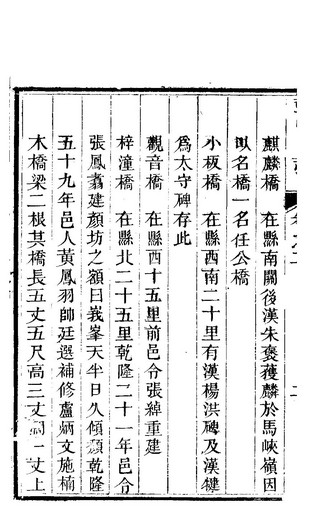 麒麟橋　在縣南關後漢朱褒獲麟於馬峽嶺因
以名橋一名任公橋
小板橋　在縣西南二十里有漢楊洪碑及漢犍
爲太守碑存此
觀音橋　在縣西十五里前邑令張綽重建
梓潼橋　在縣北二十五里乾隆二十一年邑令
張鳳翥建顏坊之額曰峩峯天半日久傾頹乾隆
五十九年邑人黃鳳羽帥廷選補修盧炳文施楠
木橋梁二根其橋長五丈五尺高三丈闊　丈上